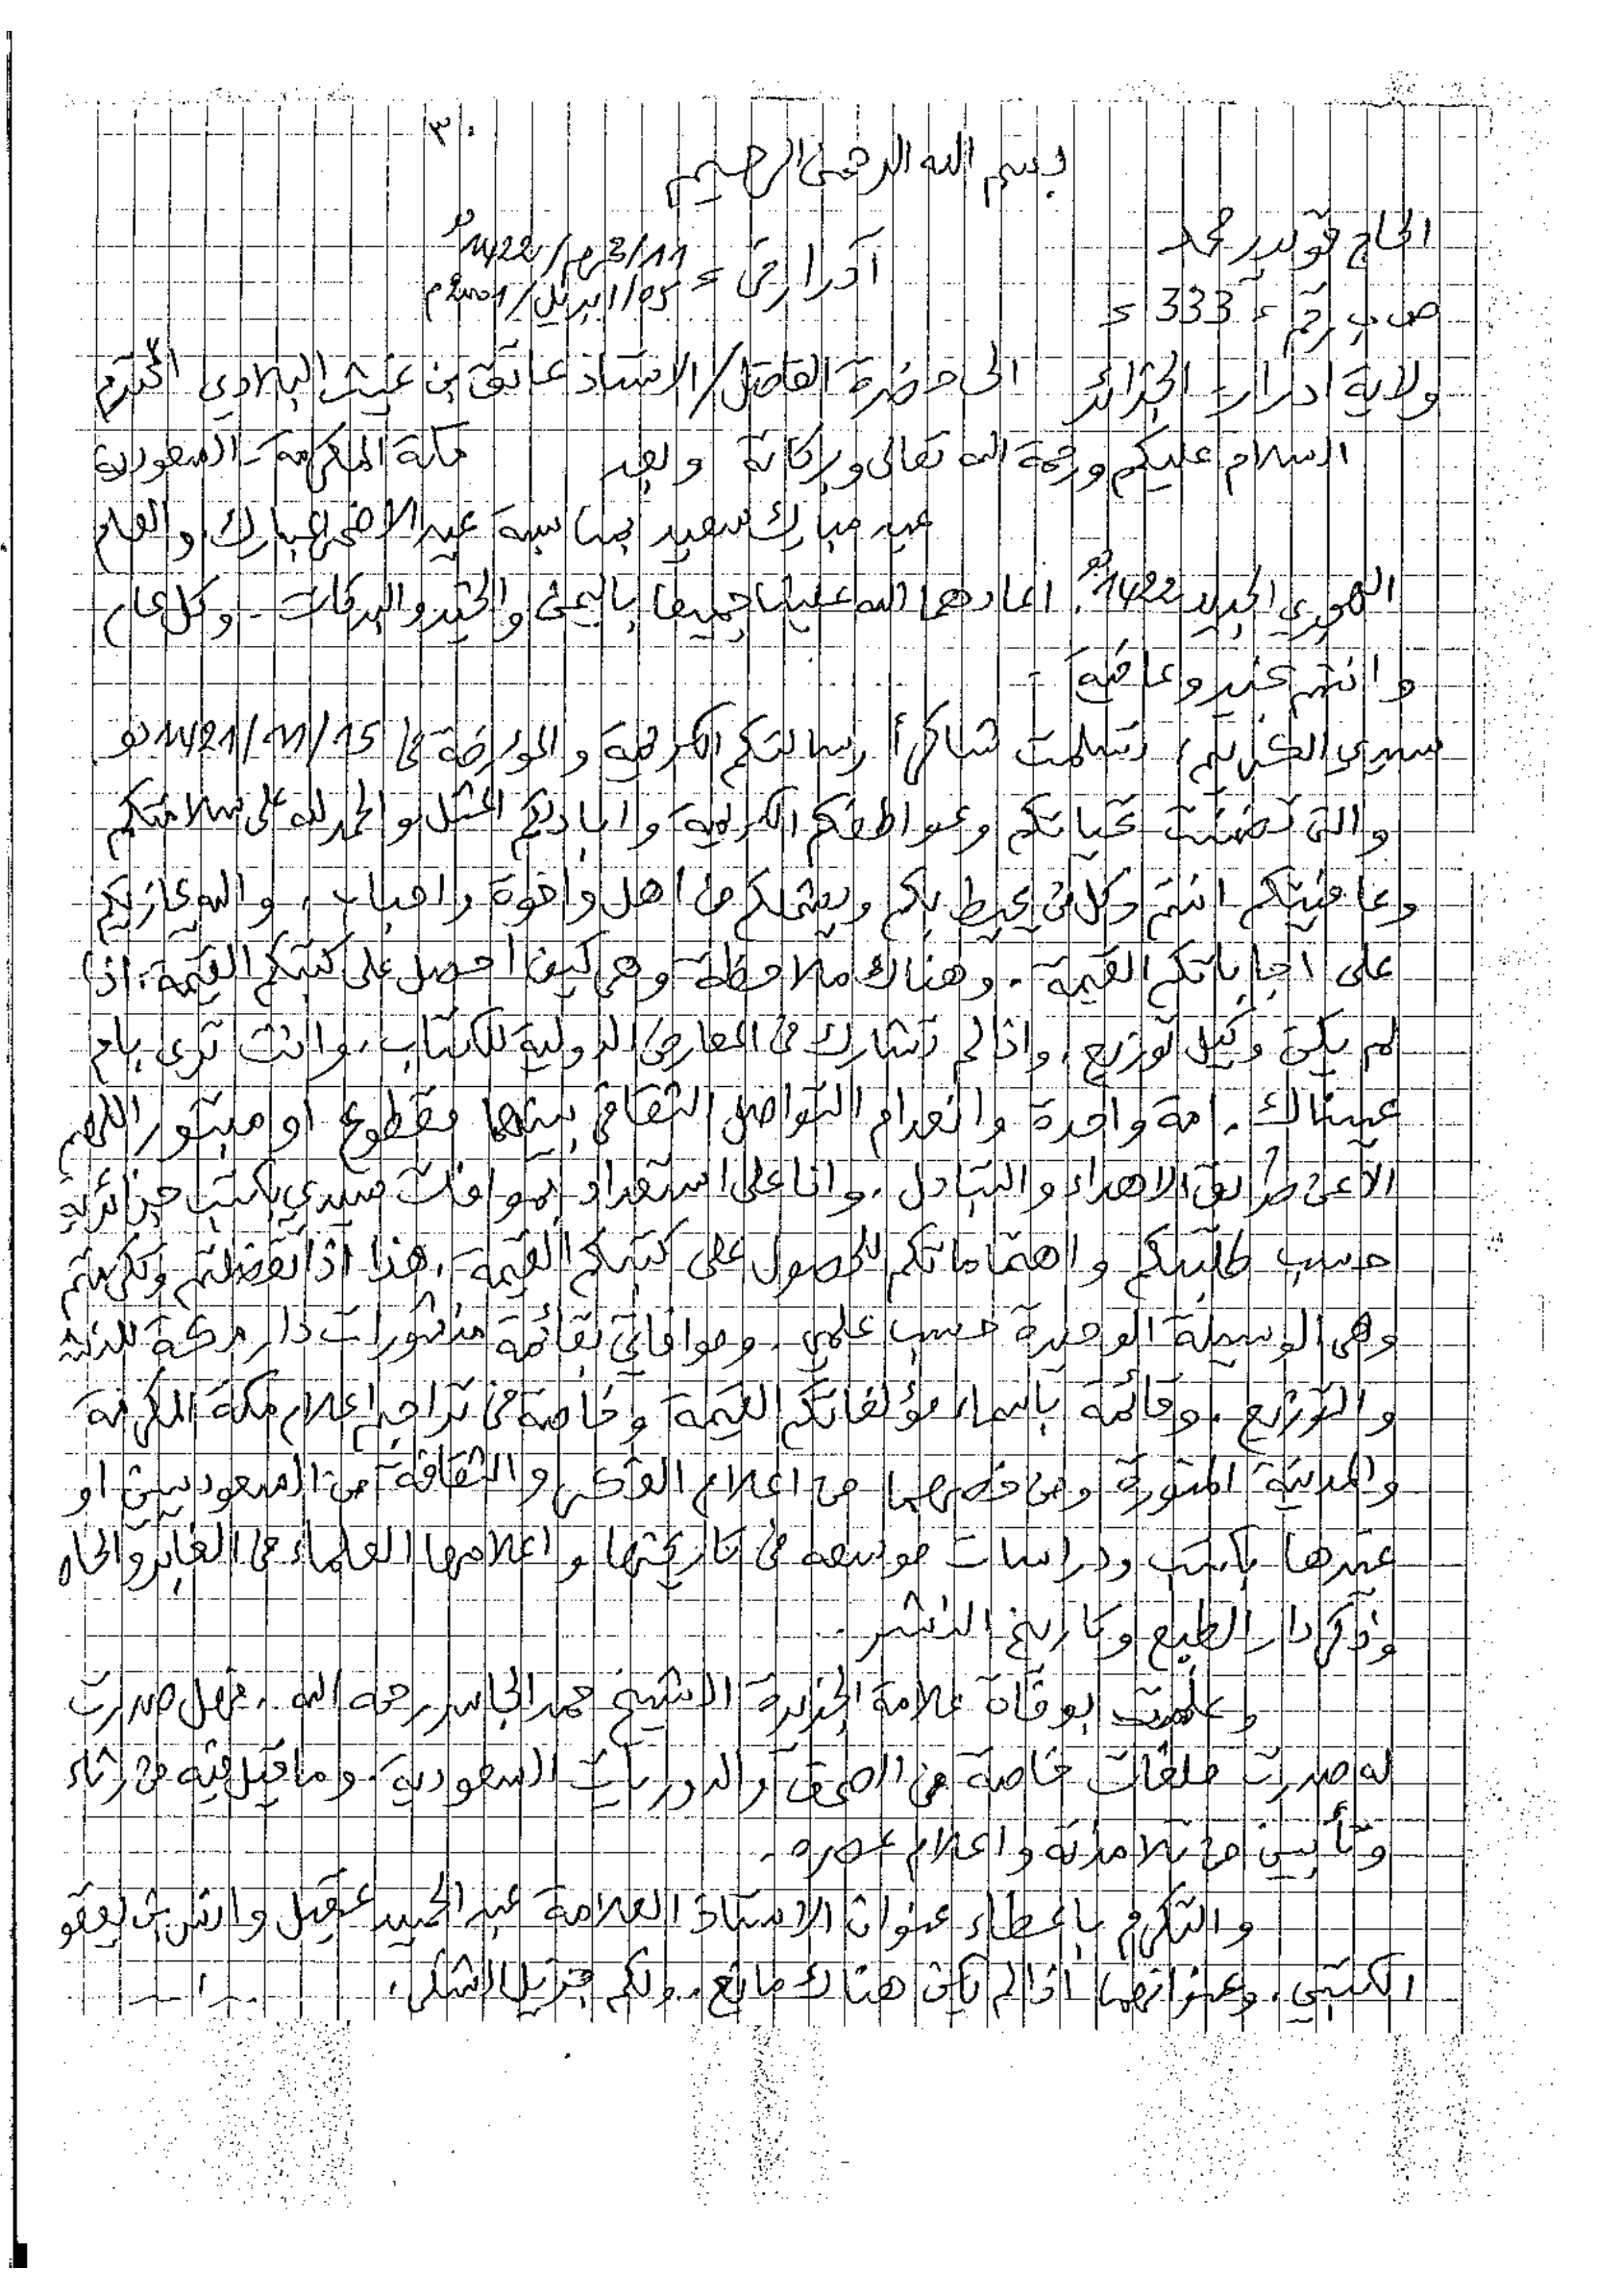 ٣٠
بسم الله الرحمن الرحيم
الحاج قويدر محمد
ادرار في = 11/محرم/1422هـ
ص ب رقم = 333 =
05/ابريل/2001م
ولاية ادرار - الجزائر الى حضرة الفاضل/الاستاذ عاتق بن غيث البلادي المحترم
السلام عليكم ورحمة الله تعالى وبركاته وبعد مكة المكرمة - السعودية
عيد مبارك سعيد بمناسبة عيد الاضحى المبارك. والعام
الهجري الجديد 1422هـ. اعادهما الله علينا جميعا باليمن والخير والبركات. وكل عام
وانتم بخير وعافية -
سيدي الكريم، تسلمت شاكرأ رسالتكم الكريمة والمؤرخة في 15/11/1421هـ
والتي تضمنت تحياتكم وعواطفكم الكريمة واياديكم المثلى والحمد لله على سلامتكم
وعافيتكم انتم وكل من يحيط بكم ويشملكم من اهل واخوة واحباب. والله يجازيكم
على اجاباتكم القيمة. وهناك ملاحظة وهي كيف احصل على كتبكم القيمة. اذا
لم يكن وكيل توزيع. واذا لم تشارك في المعارض الدولية للكتاب. وانت ترى بام
عيناك. امة واحدة وانعدام التواصل الثقافي بينهما مقطوع او مبتور اللهم
الا عن طريق الاهداء والتبادل. وانا على استعداد بموافات سيدي بكتب جزائرية
حسب طلبكم واهتماماتكم للحصول على كتبكم القيمة. هذا اذا تفضلتم وتكرمتم
وهي الوسيلة الوحيدة حسب علمي. وموافاتي بقائمة منشورات دار مكة للنشر
والتوزيع. وقائمة باسماء مؤلفاتكم القيمة وخاصة في تراجم اعلام مكة المكرمة
والمدينة المنورة ومن خصهما من اعلام الفكر والثقافة من السعوديين او
غيرها بكتب ودراسات موسعة في تاريخها واعلامها العلماء في الغابر والحا
وذكر دار الطبع وتاريخ النشر.
وعلمت بوفاة علامة الجزيرة الشيخ حمد الجاسر رحمه الله. فهل صدرت
له صدرت ملفات خاصة من الصحف والدوريات السعودية. وما قيل فيه من رثاء
وتأبين من تلامذته واعلام عصره.
والتكرم باعطاء عنوان الاستاذ العلامة عبد الحميد عقيل وانس بن يعقو
الكتبي. وعنوانهما اذا لم يكن هناك مانع. ولكم جزيل الشكر،